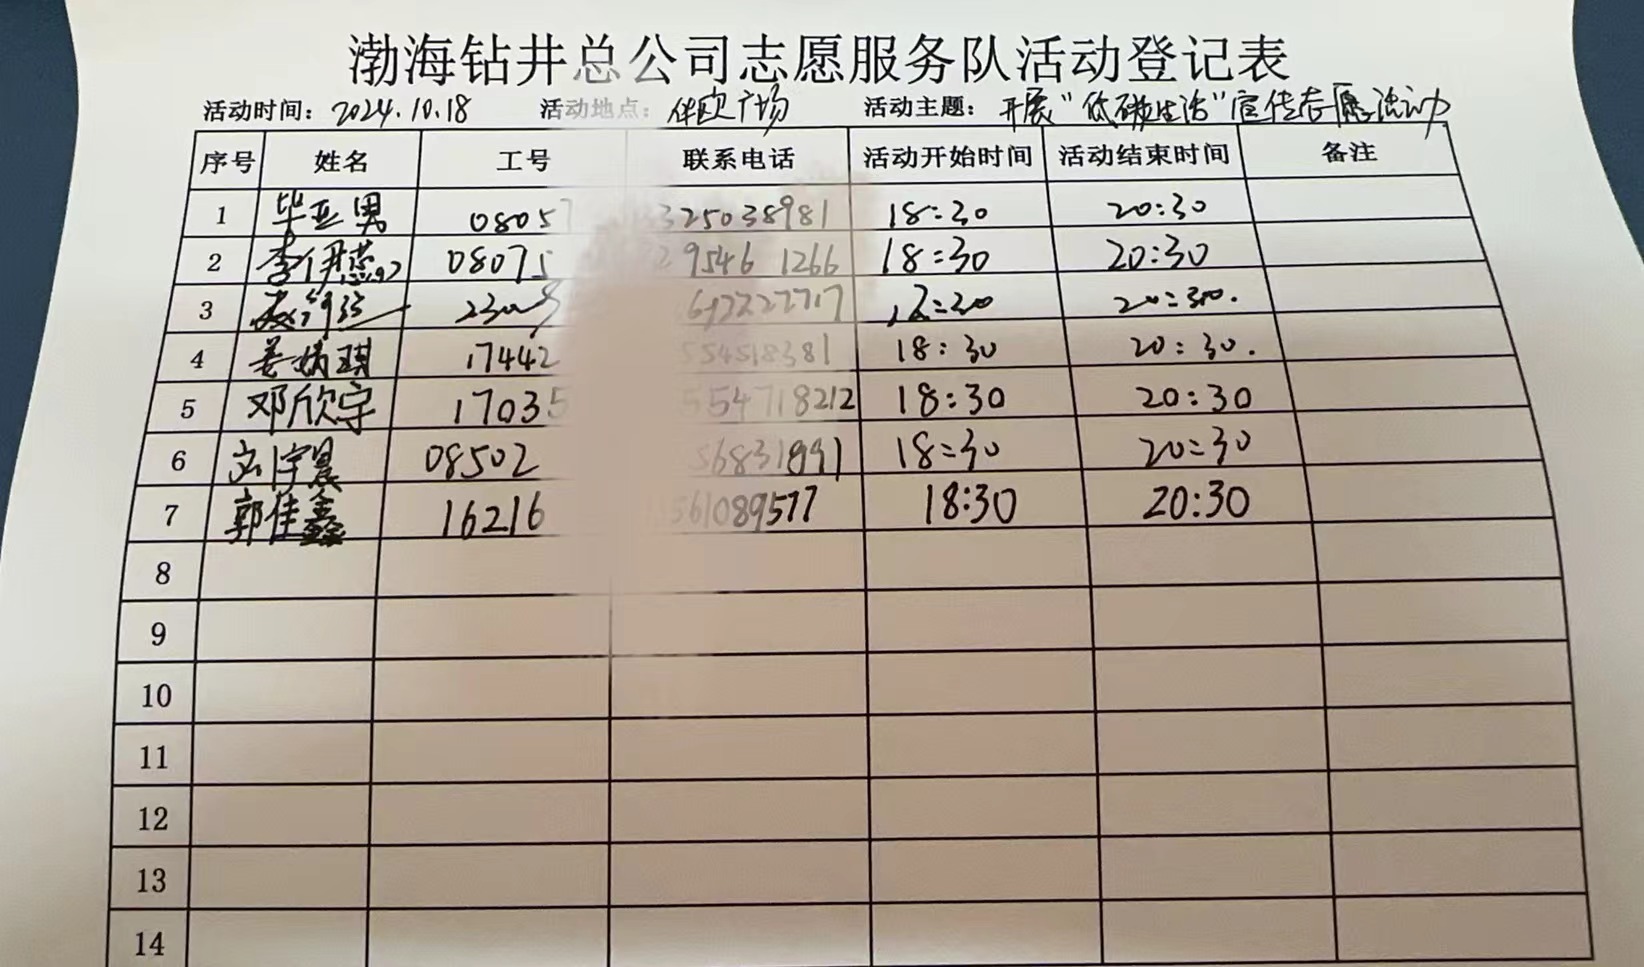 渤海钻井总公司志愿服务队活动登记表
活动时间：2024.10.18 活动地点： 广场 活动主题：开展“低碳生活”宣传志愿活动
序号 姓名 工号 联系电话 活动开始时间 活动结束时间 备注
1 毕亚男 08057 325038981 18:30 20:30
2 李伊 08075 29546 1266 18:30 20:30
3 20:30.
4 姜 琪 17442 554518381 18:30 20:30.
5 邓欣宇 17035 554718212 18:30 20:30
6 刘宇晨 08502 56831991 18:30 20:30
7 郭佳鑫 16216 561089577 18:30 20:30
8
9
10
11
12
13
14